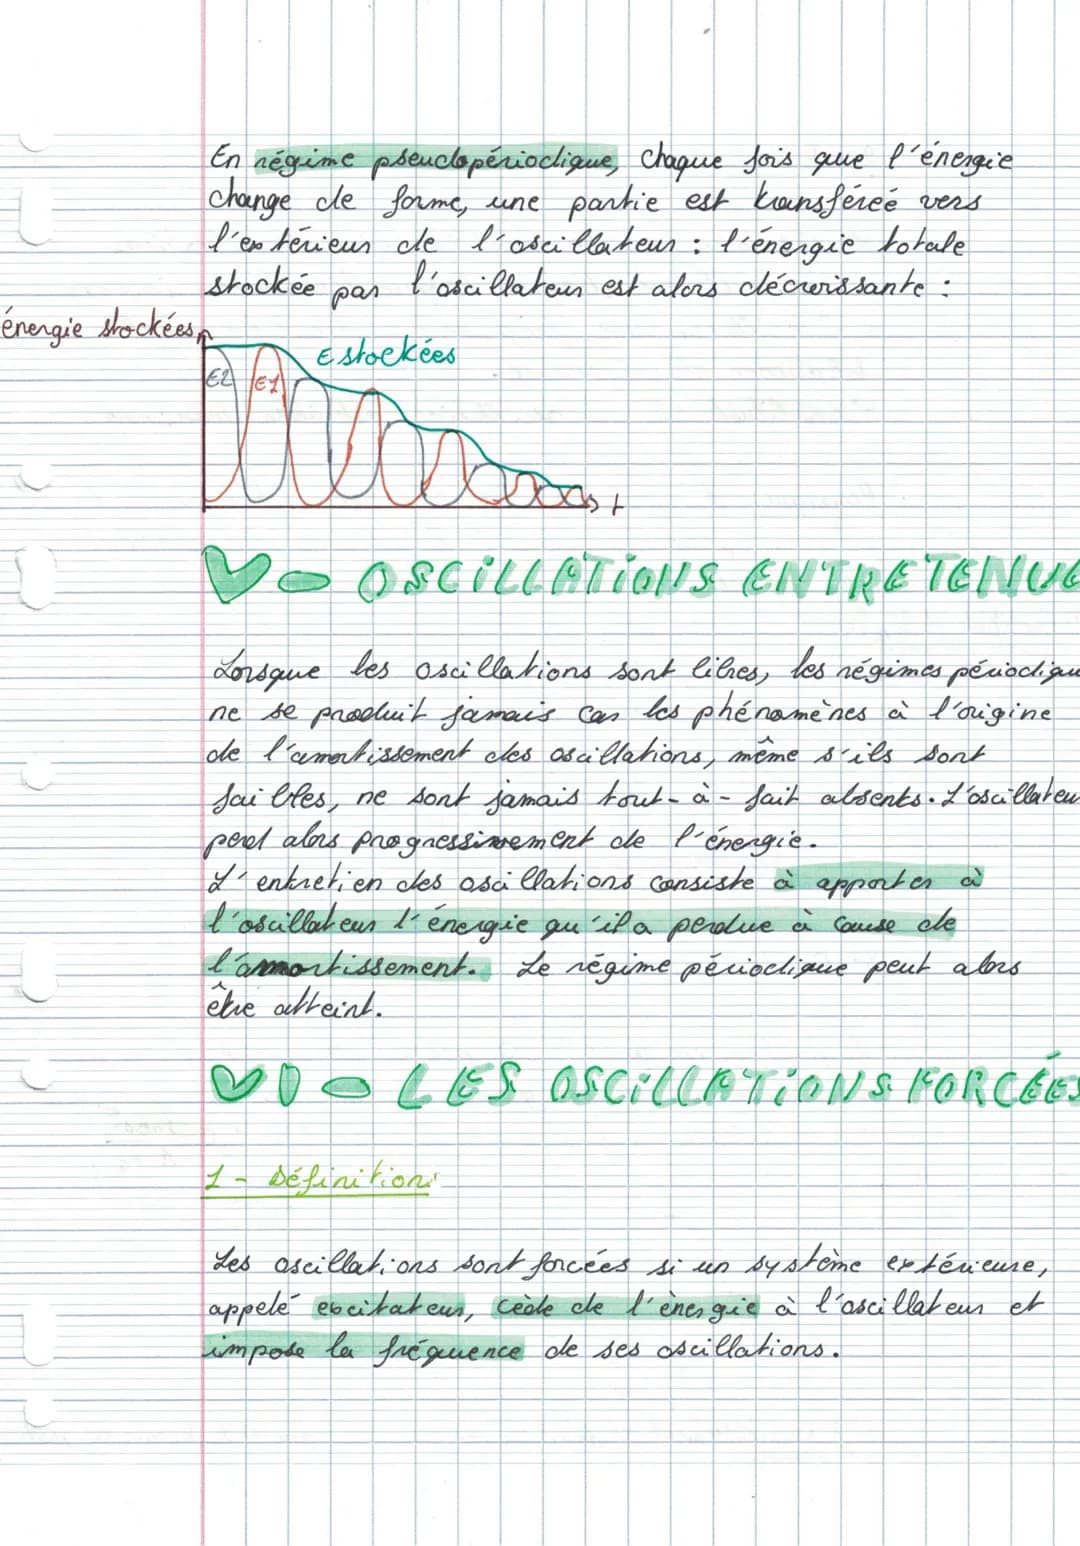 En régime pseudopériodique, chaque fois que l'énergie
change de forme, une partie est transféreé vers
l'extérieur de l'oscillateur : l'énergie totale
stockée par l'oscillateur est alors décroissante :
énergie stockées
E stockées
E2
E1
t
V - OSCILLATIONS ENTRETENUE
Lorsque les oscillations sont libres, les régimes périodiqu
ne se produit jamais car les phénomènes à l'origine
de l'amortissement des oscillations, même s'ils sont
faibles, ne sont jamais tout-à-fait absents. L'oscillateu
perd alors progressivement de l'énergie.
L'entretien des oscillations consiste à apporter à
l'oscillateur l'énergie qu'il a perdue à cause de
l'amortissement. Le régime périodique peut alors
être atteint.
VI - LES OSCILLATIONS FORCÉES
1 - Définition
Les oscillations sont forcées si un système extérieure,
appelé excitateur, cède de l'ènergie à l'oscillateur et
impose la fréquence de ses oscillations.